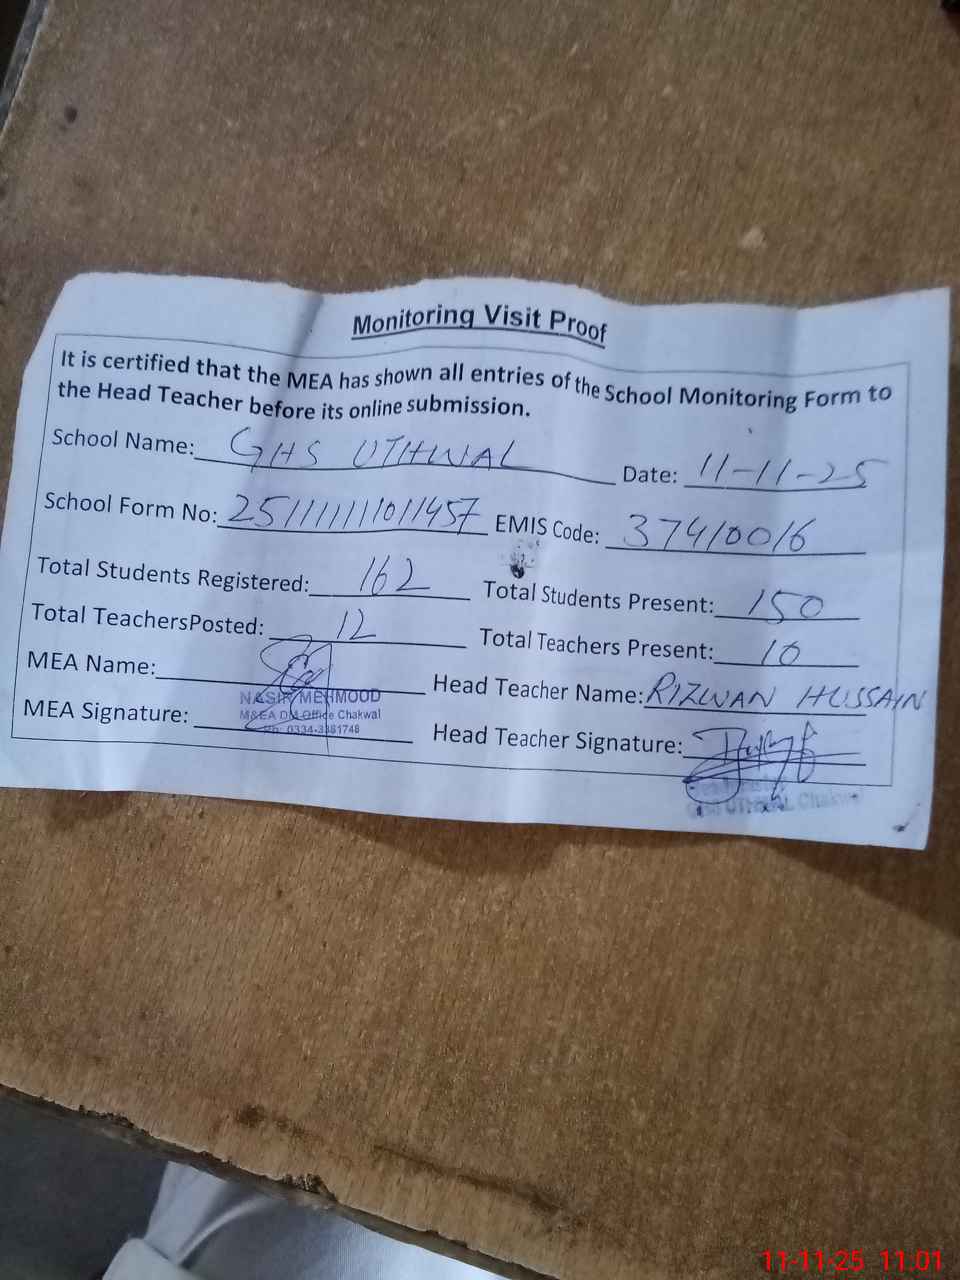 Monitoring Visit Proof
It is certified that the MEA has shown all entries of the School Monitoring Form to
the Head Teacher before its online submission.
School Name: GHS UTHWAL Date: 11-11-25
School Form No: EMIS Code: 37410016
Total Students Registered: 162 Total Students Present: 150
Total TeachersPosted: 12 Total Teachers Present: 10
MEA Name: Head Teacher Name: RIZWAN HUSSAIN
NASIR MEHMOOD
M&EA DM Office Chakwal
MEA Signature: Head Teacher Signature:
Ph: 0334-
GHS UTHWAL Chakwal
11-11-25 11.01